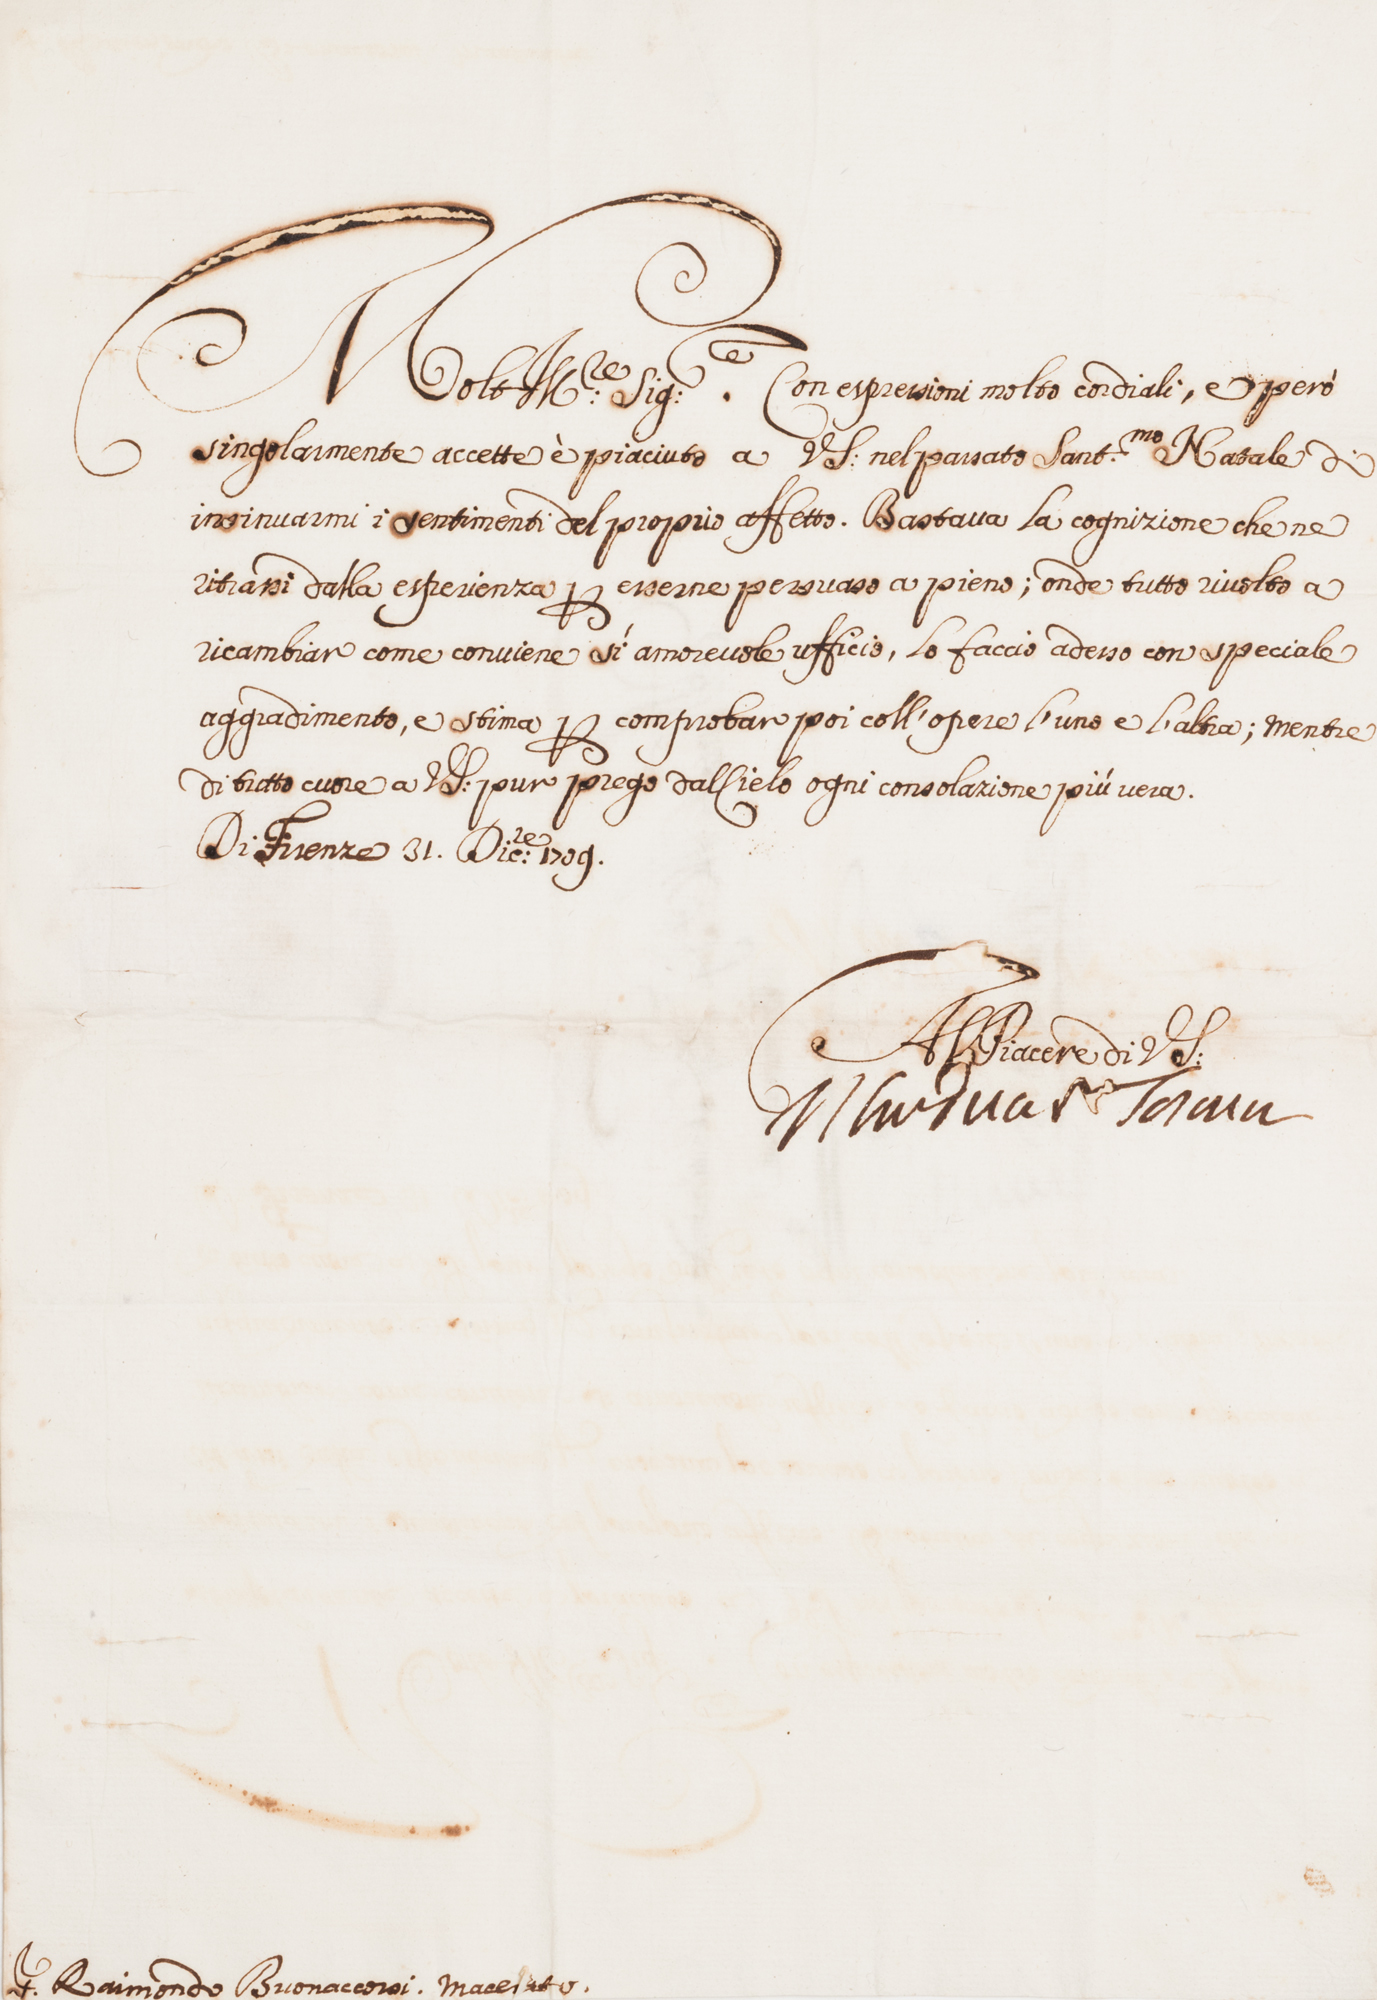 Molt Ill:re Sig:re. Con espressioni molto cordiali, e però
singolarmente accette è piaciuto a VS: nel passato Sant.mo Natale di
insinuarmi i sentimenti del proprio affetto. Bastava la cognizione che ne
ritrassi dalla esperienza per esserne persuaso a pieno; onde tutto rivolto a
ricambiar come conviene sì amorevole ufficio, lo faccio adesso con speciale
aggradimento, e stima per comprobar poi coll'opere l'uno e l'altra; mentre
di tutto cuore a VS: pur prego dal Cielo ogni consolazione più vera.
Di Firenze 31. Dic:re 1709.
Al Piacere di VS:
Raimondo Buonaccorsi. Macerata.